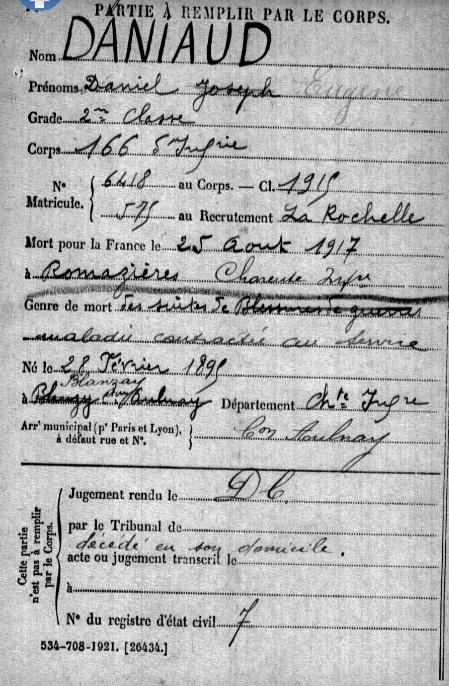 PARTIE À REMPLIR PAR LE CORPS.
Nom DANIAUD
Prénoms Daniel Joseph Eugène
Grade 2me Classe
Corps 166 d'Infrie
N° Matricule. 6418 au Corps. — Cl. 1915
575 au Recrutement La Rochelle
Mort pour la France le 25 Aout 1917
à Romazières Charente Infre
Genre de mort des suites de Blessures de guerre
maladie contractée au service
Né le 28 Février 1895
Blanzay
à Aulnay Département Chte Infre
Arrt municipal (pr Paris et Lyon), à défaut rue et N°. Con Aulnay
Cette partie n'est pas à remplir par le Corps.
Jugement rendu le DC.
par le Tribunal de
décédé en son domicile.
acte ou jugement transcrit le
à
N° du registre d'état civil 7
534-708-1921. [26434.]